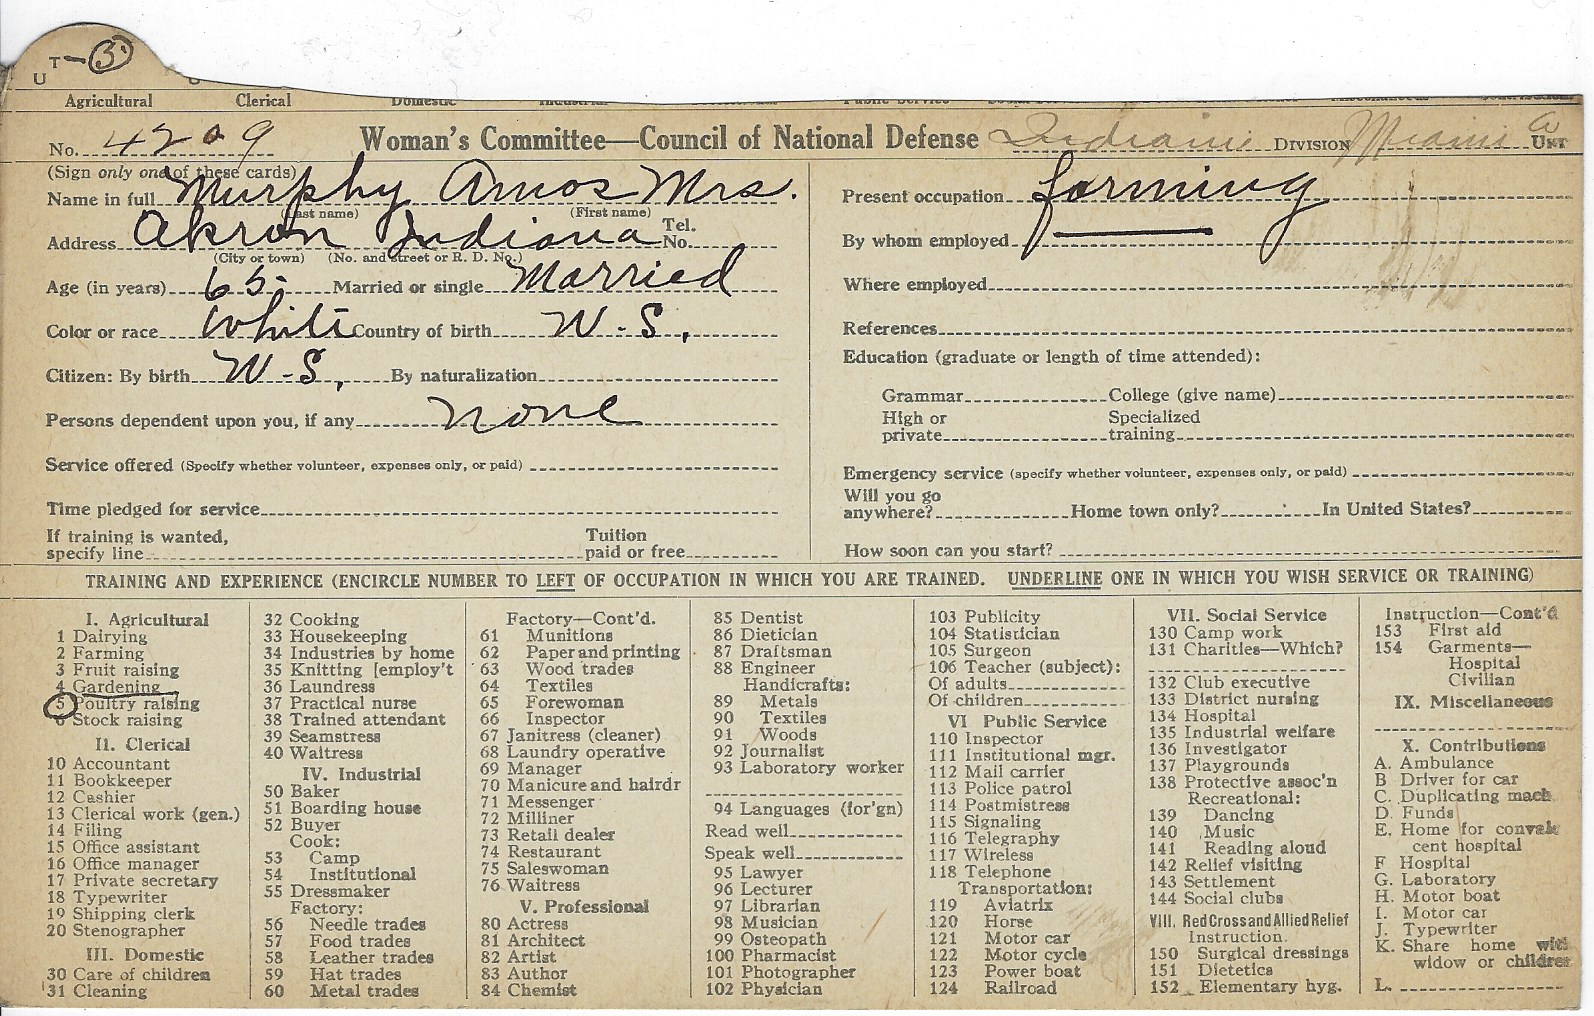 T-3
U
Agricultural Clerical Domestic Industrial Public Service Miscellaneous
No. 4209 Woman's Committee—Council of National Defense Indiana DIVISION Miami UNIT
(Sign only one of these cards)
Name in full Murphy Amos Mrs.
(Last name) (First name)
Address Akron Indiana Tel. No.
(City or town) (No. and street or R. D. No.)
Age (in years) 65. Married or single Married
Color or race White Country of birth U-S.
Citizen: By birth U-S. By naturalization
Persons dependent upon you, if any none
Service offered (Specify whether volunteer, expenses only, or paid)
Time pledged for service
If training is wanted, specify line Tuition paid or free
Present occupation farming
By whom employed
Where employed
References
Education (graduate or length of time attended):
Grammar College (give name)
High or private Specialized training
Emergency service (specify whether volunteer, expenses only, or paid)
Will you go anywhere? Home town only? In United States?
How soon can you start?
TRAINING AND EXPERIENCE (ENCIRCLE NUMBER TO LEFT OF OCCUPATION IN WHICH YOU ARE TRAINED. UNDERLINE ONE IN WHICH YOU WISH SERVICE OR TRAINING)
I. Agricultural
1 Dairying
2 Farming
3 Fruit raising
4 Gardening
5 Poultry raising
6 Stock raising
II. Clerical
10 Accountant
11 Bookkeeper
12 Cashier
13 Clerical work (gen.)
14 Filing
15 Office assistant
16 Office manager
17 Private secretary
18 Typewriter
19 Shipping clerk
20 Stenographer
III. Domestic
30 Care of children
31 Cleaning
32 Cooking
33 Housekeeping
34 Industries by home
35 Knitting [employ't
36 Laundress
37 Practical nurse
38 Trained attendant
39 Seamstress
40 Waitress
IV. Industrial
50 Baker
51 Boarding house
52 Buyer
Cook:
53 Camp
54 Institutional
55 Dressmaker
Factory:
56 Needle trades
57 Food trades
58 Leather trades
59 Hat trades
60 Metal trades
Factory—Cont'd.
61 Munitions
62 Paper and printing
63 Wood trades
64 Textiles
65 Forewoman
66 Inspector
67 Janitress (cleaner)
68 Laundry operative
69 Manager
70 Manicure and hairdr
71 Messenger
72 Milliner
73 Retail dealer
74 Restaurant
75 Saleswoman
76 Waitress
V. Professional
80 Actress
81 Architect
82 Artist
83 Author
84 Chemist
85 Dentist
86 Dietician
87 Draftsman
88 Engineer
Handicrafts:
89 Metals
90 Textiles
91 Woods
92 Journalist
93 Laboratory worker
94 Languages (for'gn)
Read well
Speak well
95 Lawyer
96 Lecturer
97 Librarian
98 Musician
99 Osteopath
100 Pharmacist
101 Photographer
102 Physician
103 Publicity
104 Statistician
105 Surgeon
106 Teacher (subject):
Of adults
Of children
VI Public Service
110 Inspector
111 Institutional mgr.
112 Mail carrier
113 Police patrol
114 Postmistress
115 Signaling
116 Telegraphy
117 Wireless
118 Telephone
Transportation:
119 Aviatrix
120 Horse
121 Motor car
122 Motor cycle
123 Power boat
124 Railroad
VII. Social Service
130 Camp work
131 Charities—Which?
132 Club executive
133 District nursing
134 Hospital
135 Industrial welfare
136 Investigator
137 Playgrounds
138 Protective assoc'n
Recreational:
139 Dancing
140 Music
141 Reading aloud
142 Relief visiting
143 Settlement
144 Social clubs
VIII. Red Cross and Allied Relief
Instruction.
150 Surgical dressings
151 Dietetics
152 Elementary hyg.
Instruction—Cont'd
153 First aid
154 Garments—
Hospital
Civilian
IX. Miscellaneous
X. Contributions
A. Ambulance
B Driver for car
C. Duplicating mach
D. Funds
E. Home for convales
cent hospital
F Hospital
G. Laboratory
H. Motor boat
I. Motor car
J. Typewriter
K. Share home with
widow or children
L.